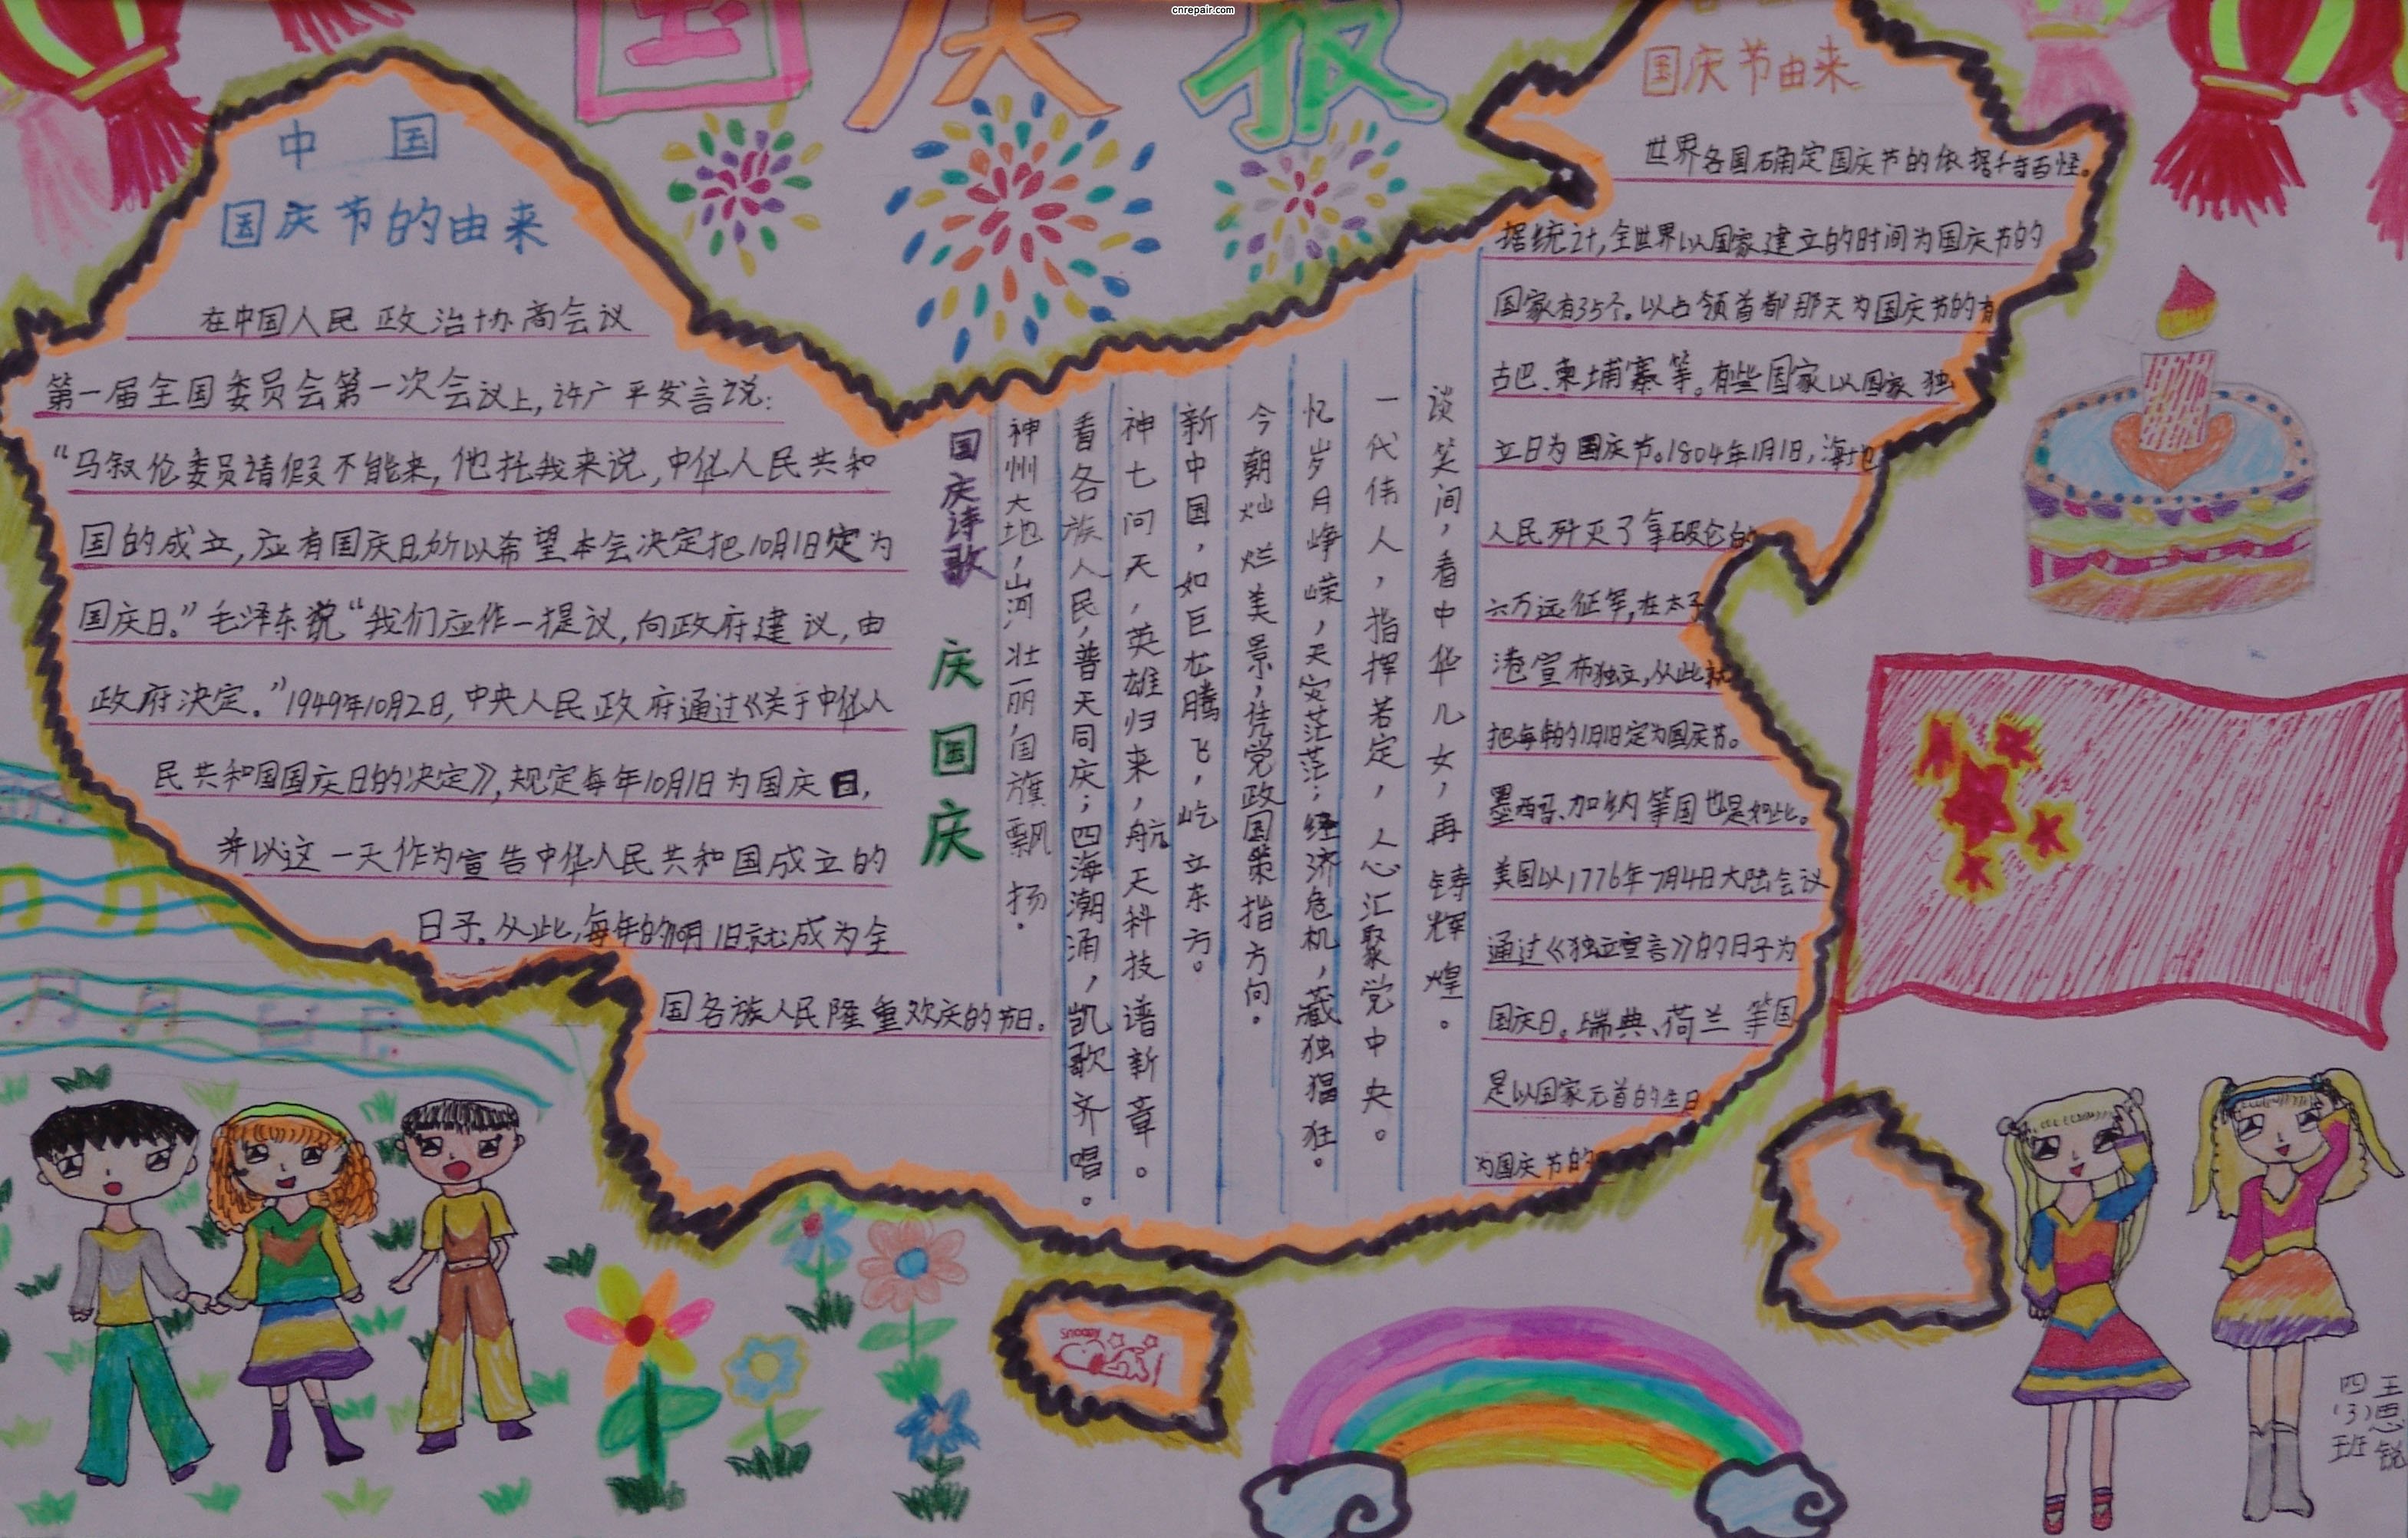 cnrepair.com
国庆报
中国
国庆节的由来
在中国人民政治协商会议
第一届全国委员会第一次会议上,许广平发言说:
“马叙伦委员请假不能来,他托我来说,中华人民共和
国的成立,应有国庆日,所以希望本会决定把10月1日定为
国庆日。”毛泽东说“我们应作一提议,向政府建议,由
政府决定。”1949年10月2日,中央人民政府通过《关于中华人
民共和国国庆日的决定》,规定每年10月1日为国庆日,
并以这一天作为宣告中华人民共和国成立的
日子。从此,每年的10月1日就成为全
国各族人民隆重欢庆的节日。
国庆诗歌
庆国庆
神州大地,山河壮丽,国旗飘扬.
看各族人民,普天同庆;四海潮涌,凯歌齐唱。
神七问天,英雄归来,航天科技谱新章。
新中国,如巨龙腾飞,屹立东方。
今朝灿烂美景,凭党政国策指方向.
忆岁月峥嵘,天灾茫茫;经济危机,藏独猖狂。
一代伟人,指挥若定,人心汇聚党中央。
谈笑间,看中华儿女,再铸辉煌。
国庆节由来
世界各国确定国庆节的依据千奇百怪。
据统计,全世界以国家建立的时间为国庆节的
国家有35个。以占领首都那天为国庆节的有
古巴、柬埔寨等。有些国家以国家独
立日为国庆节。1804年1月1日,海地
人民歼灭了拿破伦的
六万远征军,在太子
港宣布独立,从此就
把每年的1月1日定为国庆节。
墨西哥、加纳等国也是如此。
美国以1776年7月4日大陆会议
通过《独立宣言》的日子为
国庆日。瑞典、荷兰等国
是以国家元首的生日
为国庆节的
snoopy
四(3)班
王思锐